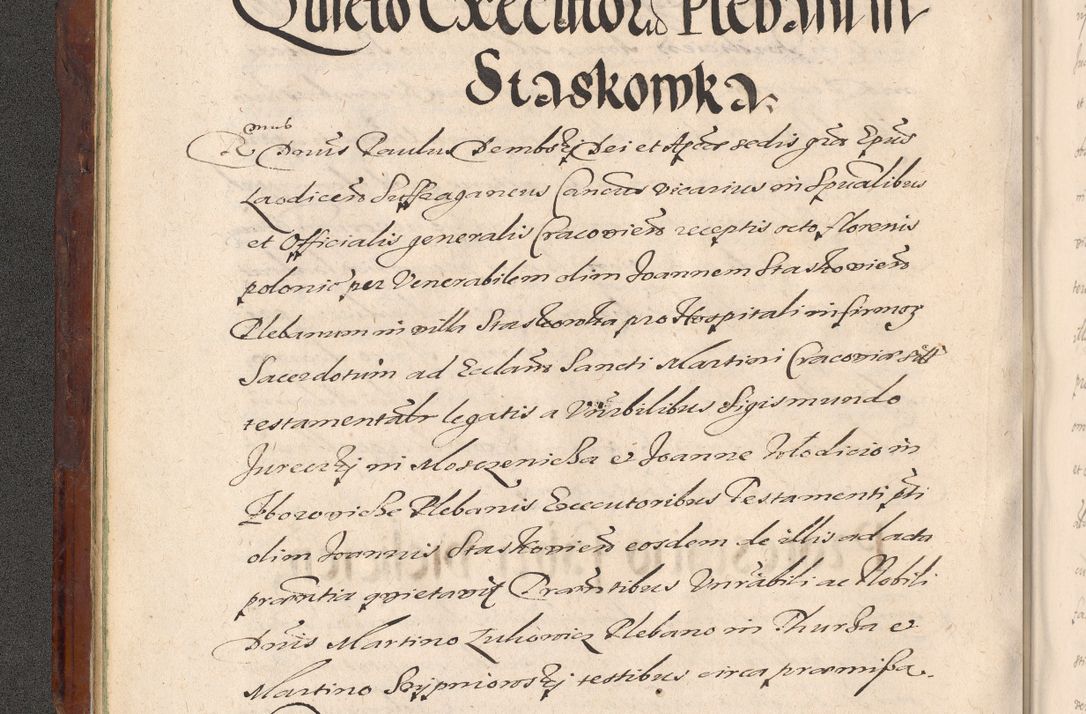 Quieto Executorū Plebani in
Staskowka.
Rmus Dnus Paulus Dembskj Dei et Aplcae sedis gra Epus
Laodiceñ Suffraganeus Cancus vicarius in Spualibus
et Officialis generalis Cracovieñ receptis octo florenis
polonic per Venerabilem olim Joannem Staskovieñ
Plebanum in villa Staskowka pro Hospitali infirmoȝ
Sacerdotum ad Ecclam Sancti Martini Cracoviae sitt
testamentalr legatis a Vnrbilibus Sigismundo
Jureczkj in Mosczenicka et Joanne Wlodicio in
Zborowiche Plebanis Executoribus Testamenti pti
olim Joannis Staskovieñ eosdem de illis ad acta
praesentia quietavit Praesentibus Vnrabili ac Nobili
Dnis Martino Zuliowicz Plebano in Thurza et
Martino Skrzypniowskj testibus circa praemissa.